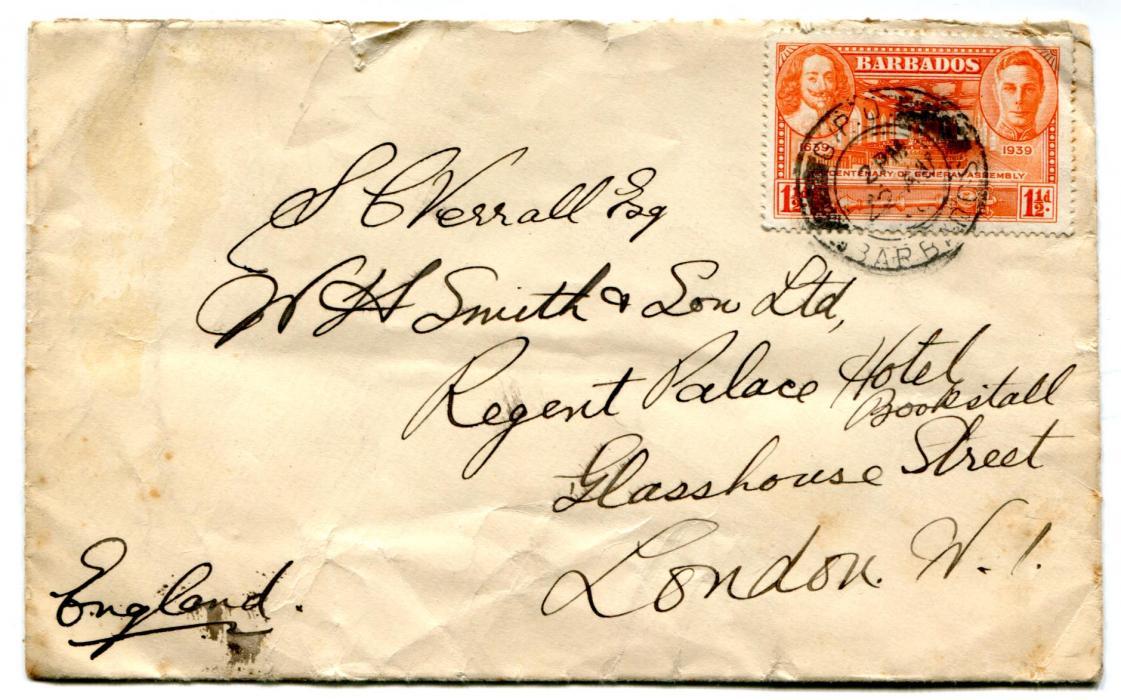 BARBADOS
1639 1939
CENTENARY OF GENERAL ASSEMBLY
1½d. 1½d.
G.P.O.
PM
BARBADOS
S C Verrall Esq
W H S Smith & Son Ltd,
Regent Palace Hotel
Bookstall
Glasshouse Street
London. W. 1.
England.